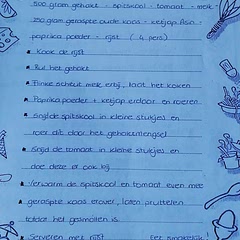 500 gram gehakt - spitskool - tomaat - melk
250 gram geraspte oude kaas - ketjap Asin -
paprika poeder - rijst ( 4 pers)
Kook de rijst
Rul het gehakt
Flinke scheut melk erbij, laat het koken
Paprika poeder + ketjap erdoor en roeren
Snijd de spitskool in kleine stukjes en
roer dit door het gehaktmengsel
Snijd de tomaat in kleine stukjes en
doe deze er ook bij
Verwarm de spitskool en tomaat even mee
geraspte kaas erover, laten pruttelen
totdat het gesmolten is
Serveren met rijst Eet smakelijk!